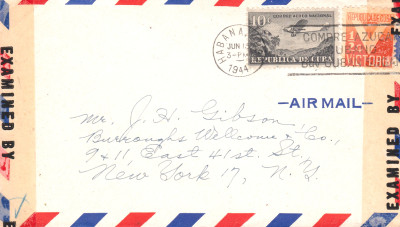 HABANA,
JUN 13
3-PM
1944
CORREO AEREO NACIONAL
10¢
REPUBLICA DE CUBA
VICTORIA
COMPRE AZUCAR
CUBANO
BUY CUBAN
AIR MAIL
Mr. J. H. Gibson
Burroughs Wellcome & Co.,
9 & 11, East 41st. St.,
New York 17, N.Y.
EXAMINED BY
EXAMINED BY